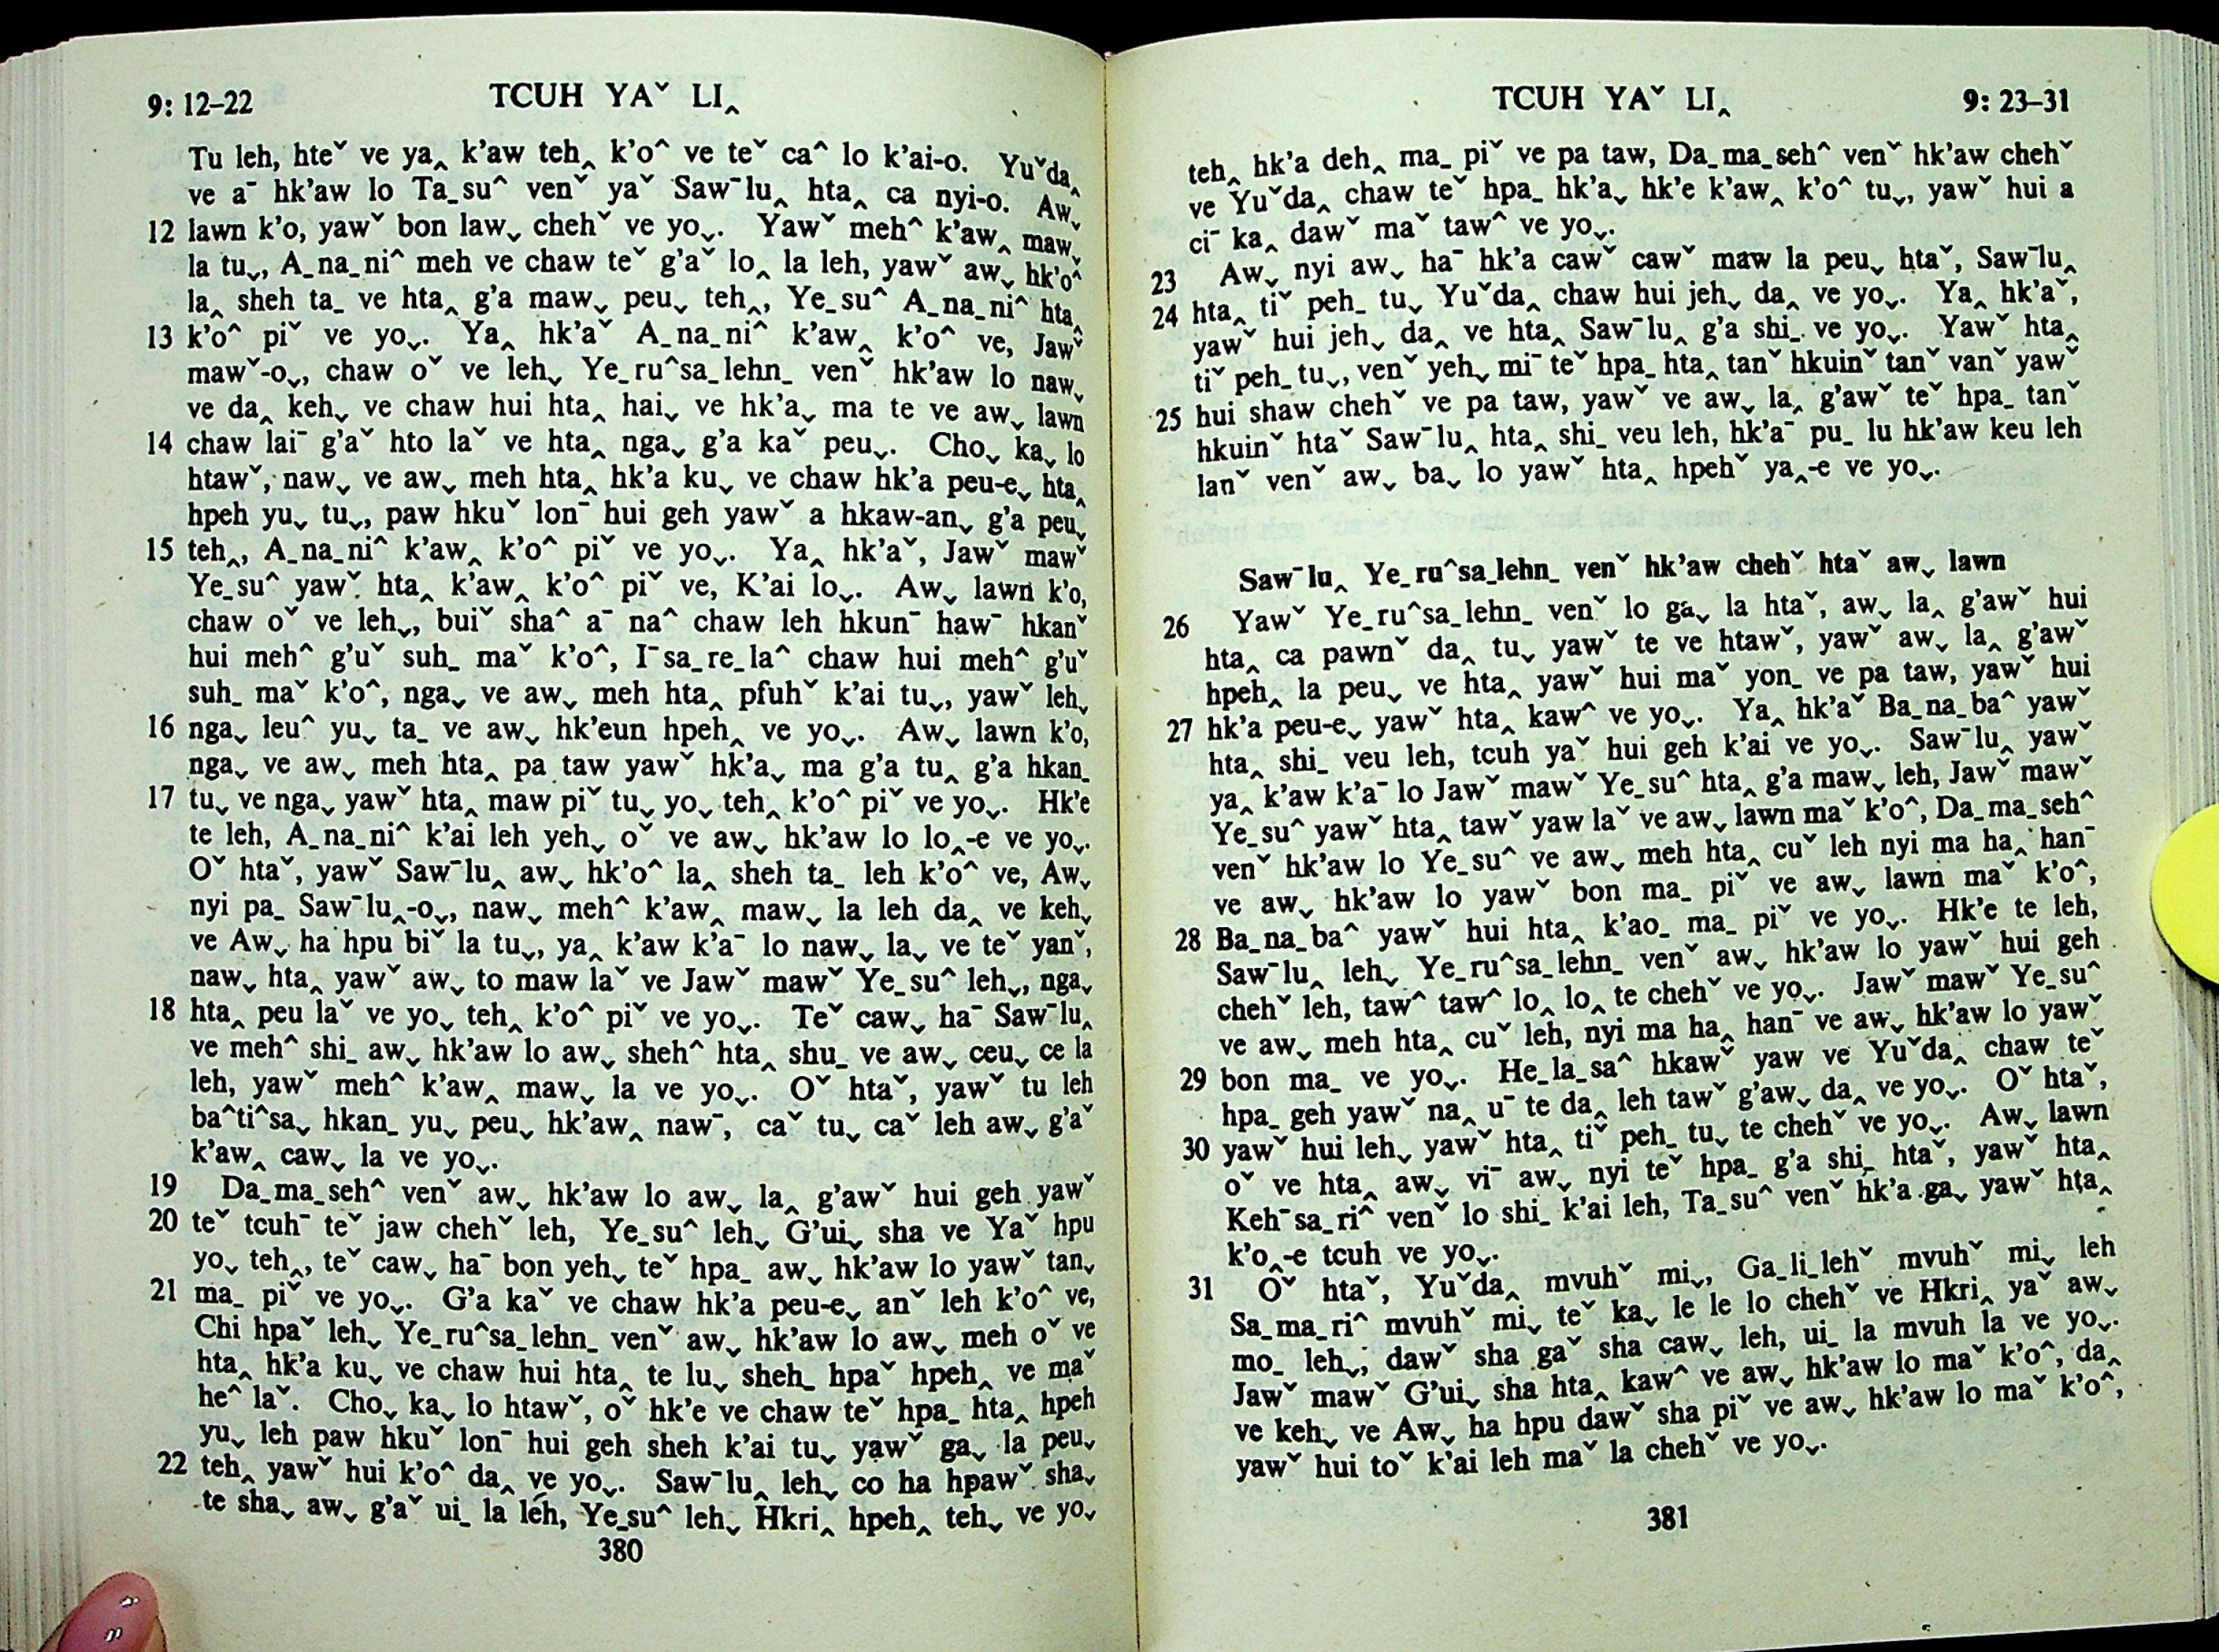 9: 12–22 TCUH YAˇ LI‸
Tu leh, hteˇ ve ya‸ k’aw teh‸ k’o^ ve teˇ ca^ lo k’ai-o. Yuˇda‸
ve aˉ hk’aw lo Ta_su^ venˇ yaˇ Sawˉlu‸ hta‸ ca nyi-o. Aw˯
12 lawn k’o, yawˇ bon law˯ chehˇ ve yo˯. Yawˇ meh^ k’aw‸ maw˯
la tu˯, A_na_ni^ meh ve chaw teˇ g’aˇ lo‸ la leh, yawˇ aw˯ hk’o^
la‸ sheh ta_ ve hta‸ g’a maw˯ peu˯ teh‸, Ye_su^ A_na_ni^ hta‸
13 k’o^ piˇ ve yo˯. Ya‸ hk’aˇ A_na_ni^ k’aw‸ k’o^ ve, Jawˇ
mawˇ-o˯, chaw oˇ ve leh˯ Ye_ru^sa_lehn_ venˇ hk’aw lo naw˯
ve da‸ keh˯ ve chaw hui hta‸ hai˯ ve hk’a˯ ma te ve aw˯ lawn
14 chaw laiˉ g’aˇ hto laˇ ve hta‸ nga˯ g’a kaˇ peu˯. Cho˯ ka˯ lo
htawˇ, naw˯ ve aw˯ meh hta‸ hk’a ku˯ ve chaw hk’a peu-e˯ hta‸
hpeh yu˯ tu˯, paw hkuˇ lonˉ hui geh yawˇ a hkaw-an˯ g’a peu˯
15 teh‸, A_na_ni^ k’aw‸ k’o^ piˇ ve yo˯. Ya‸ hk’aˇ, Jawˇ mawˇ
Ye_su^ yawˇ hta‸ k’aw‸ k’o^ piˇ ve, K’ai lo˯. Aw˯ lawn k’o,
chaw oˇ ve leh˯, buiˇ sha^ aˉ na^ chaw leh hkunˉ hawˉ hkanˇ
hui meh^ g’uˇ suh_ maˇ k’o^, Iˉsa_re_la^ chaw hui meh^ g’uˇ
suh_ maˇ k’o^, nga˯ ve aw˯ meh hta‸ pfuhˇ k’ai tu˯, yawˇ leh˯
16 nga˯ leu^ yu˯ ta_ ve aw˯ hk’eun hpeh‸ ve yo˯. Aw˯ lawn k’o,
nga˯ ve aw˯ meh hta‸ pa taw yawˇ hk’a˯ ma g’a tu‸ g’a hkan_
17 tu˯ ve nga˯ yawˇ hta‸ maw piˇ tu˯ yo˯ teh‸ k’o^ piˇ ve yo˯. Hk’e
te leh, A_na_ni^ k’ai leh yeh˯ oˇ ve aw˯ hk’aw lo lo‸-e ve yo˯.
Oˇ htaˇ, yawˇ Sawˉlu‸ aw˯ hk’o^ la‸ sheh ta_ leh k’o^ ve, Aw˯
nyi pa_ Sawˉlu‸-o˯, naw˯ meh^ k’aw‸ maw˯ la leh da‸ ve keh˯
ve Aw˯ ha hpu biˇ la tu˯, ya‸ k’aw k’aˉ lo naw˯ la˯ ve teˇ yanˇ,
naw˯ hta‸ yawˇ aw˯ to maw laˇ ve Jawˇ mawˇ Ye_su^ leh˯, nga˯
18 hta‸ peu laˇ ve yo˯ teh‸ k’o^ piˇ ve yo˯. Teˇ caw˯ haˉ Sawˉlu‸
ve meh^ shi_ aw˯ hk’aw lo aw˯ sheh^ hta‸ shu_ ve aw˯ ceu˯ ce la
leh, yawˇ meh^ k’aw‸ maw˯ la ve yo˯. Oˇ htaˇ, yawˇ tu leh
ba^ti^sa˯ hkan_ yu˯ peu˯ hk’aw‸ nawˉ, caˇ tu˯ caˇ leh aw˯ g’aˇ
k’aw‸ caw˯ la ve yo˯.
19 Da_ma_seh^ venˇ aw˯ hk’aw lo aw˯ la‸ g’awˇ hui geh yawˇ
20 teˇ tcuhˉ teˇ jaw chehˇ leh, Ye_su^ leh˯ G’ui˯ sha ve Yaˇ hpu
yo˯ teh‸, teˇ caw˯ haˉ bon yeh˯ teˇ hpa_ aw˯ hk’aw lo yawˇ tan˯
21 ma_ piˇ ve yo˯. G’a kaˇ ve chaw hk’a peu-e˯ anˇ leh k’o^ ve,
Chi hpaˇ leh˯ Ye_ru^sa_lehn_ venˇ aw˯ hk’aw lo aw˯ meh oˇ ve
hta‸ hk’a ku˯ ve chaw hui hta‸ te lu˯ sheh_ hpaˇ hpeh‸ ve maˇ
he^ laˇ. Cho˯ ka˯ lo htawˇ, oˇ hk’e ve chaw teˇ hpa_ hta‸ hpeh
yu˯ leh paw hkuˇ lonˉ hui geh sheh k’ai tu˯ yawˇ ga˯ la peu˯
22 teh‸ yawˇ hui k’o^ da‸ ve yo˯. Sawˉlu‸ leh˯ co ha hpawˇ sha˯
te sha˯ aw˯ g’aˇ ui_ la leh, Ye_su^ leh˯ Hkri‸ hpeh‸ teh˯ ve yo˯
380
TCUH YAˇ LI‸ 9: 23–31
teh‸ hk’a deh‸ ma_ piˇ ve pa taw, Da_ma_seh^ venˇ hk’aw chehˇ
ve Yuˇda‸ chaw teˇ hpa_ hk’a˯ hk’e k’aw‸ k’o^ tu˯, yawˇ hui a
ciˉ ka‸ dawˇ maˇ taw^ ve yo˯.
23 Aw˯ nyi aw˯ haˉ hk’a cawˇ cawˇ maw la peu˯ htaˇ, Sawˉlu‸
24 hta‸ tiˇ peh_ tu˯ Yuˇda‸ chaw hui jeh˯ da‸ ve yo˯. Ya‸ hk’aˇ,
yawˇ hui jeh˯ da‸ ve hta‸ Sawˉlu‸ g’a shi_ ve yo˯. Yawˇ hta‸
tiˇ peh_ tu˯, venˇ yeh˯ miˉ teˇ hpa_ hta‸ tanˇ hkuinˇ tanˇ vanˇ yawˇ
25 hui shaw chehˇ ve pa taw, yawˇ ve aw˯ la‸ g’awˇ teˇ hpa_ tanˇ
hkuinˇ htaˇ Sawˉlu‸ hta‸ shi_ veu leh, hk’aˉ pu_ lu hk’aw keu leh
lanˇ venˇ aw˯ ba˯ lo yawˇ hta‸ hpehˇ ya‸-e ve yo˯.
Sawˉlu‸ Ye_ru^sa_lehn_ venˇ hk’aw chehˇ htaˇ aw˯ lawn
26 Yawˇ Ye_ru^sa_lehn_ venˇ lo ga˯ la htaˇ, aw˯ la‸ g’awˇ hui
hta‸ ca pawnˇ da‸ tu˯ yawˇ te ve htawˇ, yawˇ aw˯ la‸ g’awˇ
hpeh‸ la peu˯ ve hta‸ yawˇ hui maˇ yon_ ve pa taw, yawˇ hui
27 hk’a peu-e˯ yawˇ hta‸ kaw^ ve yo˯. Ya‸ hk’aˇ Ba_na_ba^ yawˇ
hta‸ shi_ veu leh, tcuh yaˇ hui geh k’ai ve yo˯. Sawˉlu‸ yawˇ
ya‸ k’aw k’aˉ lo Jawˇ mawˇ Ye_su^ hta‸ g’a maw˯ leh, Jawˇ mawˇ
Ye_su^ yawˇ hta‸ tawˇ yaw laˇ ve aw˯ lawn maˇ k’o^, Da_ma_seh^
venˇ hk’aw lo Ye_su^ ve aw˯ meh hta‸ cuˇ leh nyi ma ha‸ hanˉ
ve aw˯ hk’aw lo yawˇ bon ma_ piˇ ve aw˯ lawn maˇ k’o^,
28 Ba_na_ba^ yawˇ hui hta‸ k’ao_ ma_ piˇ ve yo˯. Hk’e te leh,
Sawˉlu‸ leh˯ Ye_ru^sa_lehn_ venˇ aw˯ hk’aw lo yawˇ hui geh
chehˇ leh, taw^ taw^ lo‸ lo‸ te chehˇ ve yo˯. Jawˇ mawˇ Ye_su^
ve aw˯ meh hta‸ cuˇ leh, nyi ma ha‸ hanˉ ve aw˯ hk’aw lo yawˇ
29 bon ma_ ve yo˯. He_la_sa^ hkawˇ yaw ve Yuˇda‸ chaw teˇ
hpa_ geh yawˇ na‸ uˉ te da‸ leh tawˇ g’aw˯ da‸ ve yo˯. Oˇ htaˇ,
30 yawˇ hui leh˯ yawˇ hta‸ tiˇ peh_ tu˯ te chehˇ ve yo˯. Aw˯ lawn
oˇ ve hta‸ aw˯ viˉ aw˯ nyi teˇ hpa_ g’a shi_ htaˇ, yawˇ hta‸
Kehˉsa_ri^ venˇ lo shi_ k’ai leh, Ta_su^ venˇ hk’a ga˯ yawˇ hta‸
k’o‸-e tcuh ve yo˯.
31 Oˇ htaˇ, Yuˇda‸ mvuhˇ mi˯, Ga_li_lehˇ mvuhˇ mi˯ leh
Sa_ma_ri^ mvuhˇ mi˯ teˇ ka˯ le le lo chehˇ ve Hkri‸ yaˇ aw˯
mo_ leh˯, dawˇ sha gaˇ sha caw˯ leh, ui_ la mvuh la ve yo˯.
Jawˇ mawˇ G’ui˯ sha hta‸ kaw^ ve aw˯ hk’aw lo maˇ k’o^, da‸
ve keh˯ ve Aw˯ ha hpu dawˇ sha piˇ ve aw˯ hk’aw lo maˇ k’o^,
yawˇ hui toˇ k’ai leh maˇ la chehˇ ve yo˯.
381